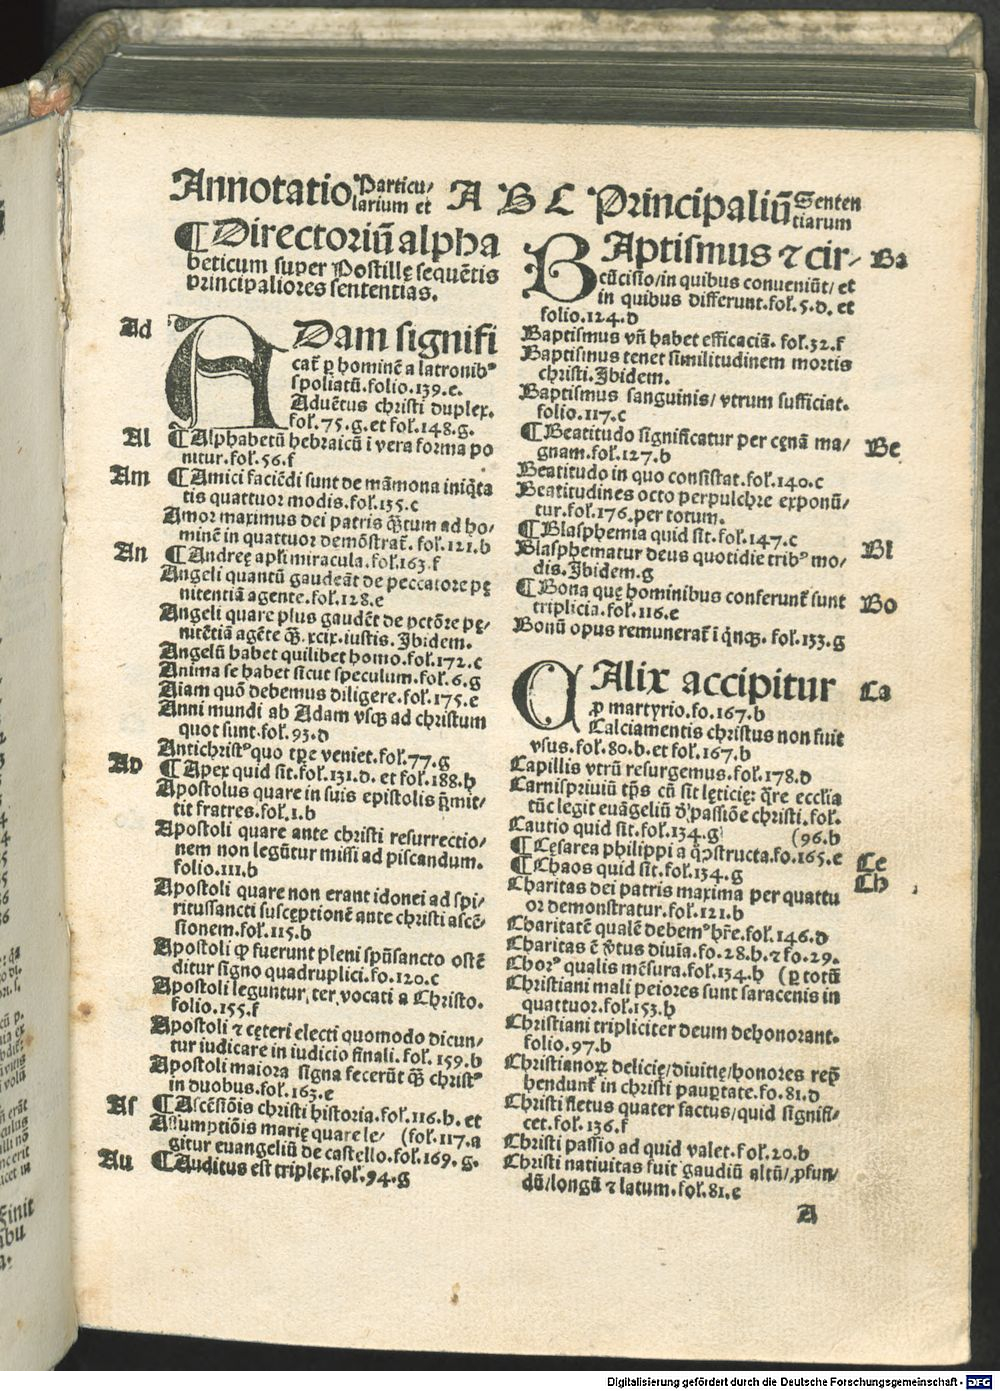 Annotatio Particu/larium et A B C Principaliū Sententiarum
¶ Directoriū alpha
beticum super Postillę sequētis
principaliores sententias.
Ad
ADam signifi
cat̄ ꝑ hominē a latronibꝰ
spoliatū.folio.139.e.
Aduētus christi duplex.
fol.75.g.et fol.148.g.
Al
¶ Alphabetū hebraicū i vera forma po
nitur.fol.56.f
Am
¶ Amici faciēdi sunt de māmona iniq̄ta
tis quattuor modis.fol.135.c
Amor maximus dei patris q̄ꝫtum ad ho/
minē in quattuor demōstrat̄. fol.121.b
An
¶ Andreę apłi miracula.fol.163.f
Angeli quantū gaudeāt de peccatore pę
nitentiā agente.fol.128.e
Angeli quare plus gaudēt de pctōre pę/
nitētiā agēte q̄ꝫ.xcix.iustis. Ibidem.
Angelū habet quilibet homo.fol.172.c
Anima se habet sicut speculum.fol.6.g
Aīam quō debemus diligere.fol.175.e
Anni mundi ab Adam vsqꝫ ad christum
quot sunt.fol.93.d
Antichristꝰ quo tp̄e veniet.fol.77.g
Ap
¶ Apex quid sit.fol.131.d. et fol.188.h
Apostolus quare in suis epistolis p̄mit/
tit fratres.fol.1.b
Apostoli quare ante christi resurrectio/
nem non legūtur missi ad piscandum.
folio.111.b
Apostoli quare non erant idonei ad spi/
ritussancti susceptionē ante christi ascē/
sionem.fol.115.b
Apostoli ꝙ fuerunt pleni spūsancto ostē
ditur signo quadruplici.fo.120.c
Apostoli leguntur ter vocati a Christo.
folio.155.f
Apostoli ⁊ cęteri electi quomodo dicun/
tur iudicare in iudicio finali.fol. 159.b
Apostoli maiora signa fecerūt q̄ꝫ christꝰ
in duobus.fol.163.e
As
¶ Ascēsiōis christi historia.fol.116.b. et
Assumptiōis marię quare le/ (fol.117.a
gitur euangeliū de castello.fol.169.g.
Au
¶ Auditus est triplex.fol.94.g
Ba
BAptismus ⁊ cir/
cūcisio/in quibus conueniūt/ et
in quibus differunt.fol.5.d. et
folio.124.d
Baptismus vñ habet efficaciā. fol.32.f
Baptismus tenet similitudinem mortis
christi.Ibidem.
Baptismus sanguinis/ vtrum sufficiat.
folio.117.c
Be
¶ Beatitudo significatur per cęnā ma/
gnam.fol.127.b
Beatitudo in quo consistat.fol.140.c
Beatitudines octo perpulchre exponū/
tur.fol.176.per totum.
Bl
¶ Blasphemia quid sit.fol.147.c
Blasphematur deus quotidie tribꝰ mo/
dis.Ibidem.g
Bo
¶ Bona quę hominibus conferunt̄ sunt
triplicia.fol.116.e
Bonū opus remunerat̄ i q̄nqꝫ. fol.133.g
Ca
CAlix accipitur
ꝓ martyrio.fo.167.b
Calciamentis christus non fuit
vsus.fol.80.b.et fol.167.b
Capillis vtrū resurgemus.fol.178.d
Carnispriuiū tp̄s cū sit lęticię: q̄re ecclīa
tūc legit euāgeliū d̓ passiōe christi.fol.
Cautio quid sit.fol.134.g (96.b
Ce
¶ Cęsarea philippi a q̄ ꝯstructa.fo.165.e
Ch
¶ Chaos quid sit.fol.134.g
Charitas dei patris maxima per quattu
or demonstratur.fol.121.b
Charitatē qualē debemꝰ hr̄e.fol.146.d
Charitas ē v̓tus diuīa.fo.28.h.⁊ fo.29.
Chorꝰ qualis mēsura.fol.134.h (ꝑ totū
Christiani mali peiores sunt saracenis in
quattuor.fol.153.h
Christiani tripliciter deum dehonorant.
folio.97.b
Christianoꝝ delicię/diuitię/honores rep̄
hendunt̄ in christi paup̱tate.fo.81.d
Christi fletus quater factus/quid signifi/
cet.fol.136.f
Christi passio ad quid valet.fol.20.b
Christi natiuitas fuit gaudiū altū/ꝓfun/
dū/longū ⁊ latum.fol.81.e
A
Digitalisierung gefördert durch die Deutsche Forschungsgemeinschaft - DFG